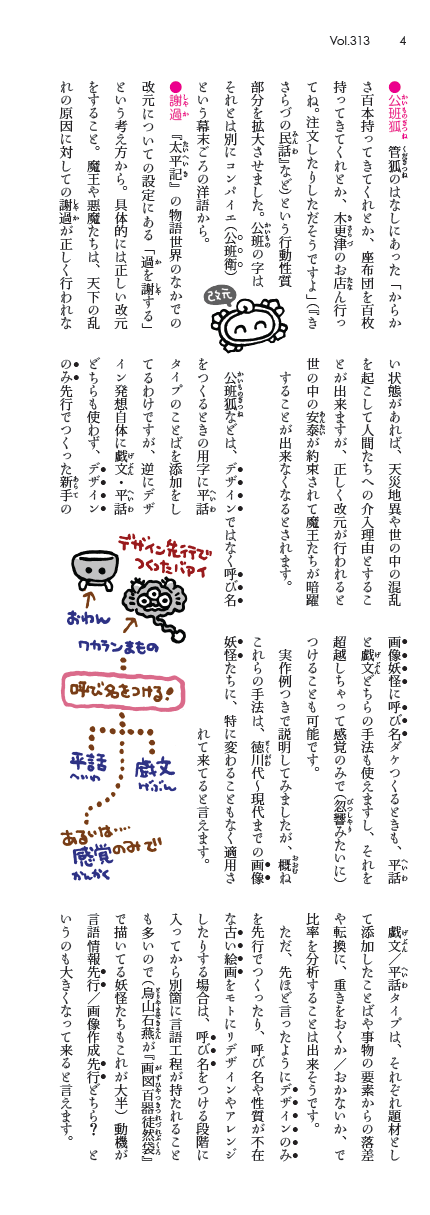 Vol.313
4
●公班狐　管狐のはなしにあった「からか
さ百本持ってきてくれとか、座布団を百枚
持ってきてくれとか、木更津のお店ん行っ
てね。注文したりしただそうですよ」（『き
さらづの民話』など）という行動性質
部分を拡大させました。公班の字は
それとは別にコンパイエ（公班衙）
という幕末ごろの洋語から。
●謝過　『太平記』の物語世界のなかでの
改元についての設定にある「過を謝する」
という考え方から。具体的には正しい改元
をすること。魔王や悪魔たちは、天下の乱
れの原因に対しての謝過が正しく行われな
改元
い状態があれば、天災地異や世の中の混乱
を起こして人間たちへの介入理由とするこ
とが出来ますが、正しく改元が行われると
世の中の安泰が約束されて魔王たちが暗躍
することが出来なくなるとされます。
公班狐などは、デザインではなく呼び名
をつくるときの用字に平話
タイプのことばを添加をし
てるわけですが、逆にデザ
イン発想自体に戯文・平話
どちらも使わず、デザイン
のみ先行でつくった新手の
デザイン先行で
つくったバアイ
おわん
ワカランまもの
呼び名をつける！
平話
へいわ
戯文
げぶん
あるいは‥‥
感覚のみで
かんかく
画像妖怪に呼び名ダケつくるときも、平話
と戯文どちらの手法も使えますし、それを
超越しちゃって感覚のみで（忽響みたいに）
つけることも可能です。
実作例つきで説明してみましたが、概ね
これらの手法は、徳川代～現代までの画像
妖怪たちに、特に変わることもなく適用さ
れて来てると言えます。
戯文／平話タイプは、それぞれ題材とし
て添加したことばや事物の要素からの落差
や転換に、重きをおくか／おかないか、で
比率を分析することは出来そうです。
ただ、先ほど言ったようにデザインのみ
を先行でつくったり、呼び名や性質が不在
な古い絵画をモトにリデザインやアレンジ
したりする場合は、呼び名をつける段階に
入ってから別箇に言語工程が持たれること
も多いので（鳥山石燕が『画図百器徒然袋』
で描いてる妖怪たちもこれが大半）動機が
言語情報先行／画像作成先行どちら？　と
いうのも大きくなって来ると言えます。